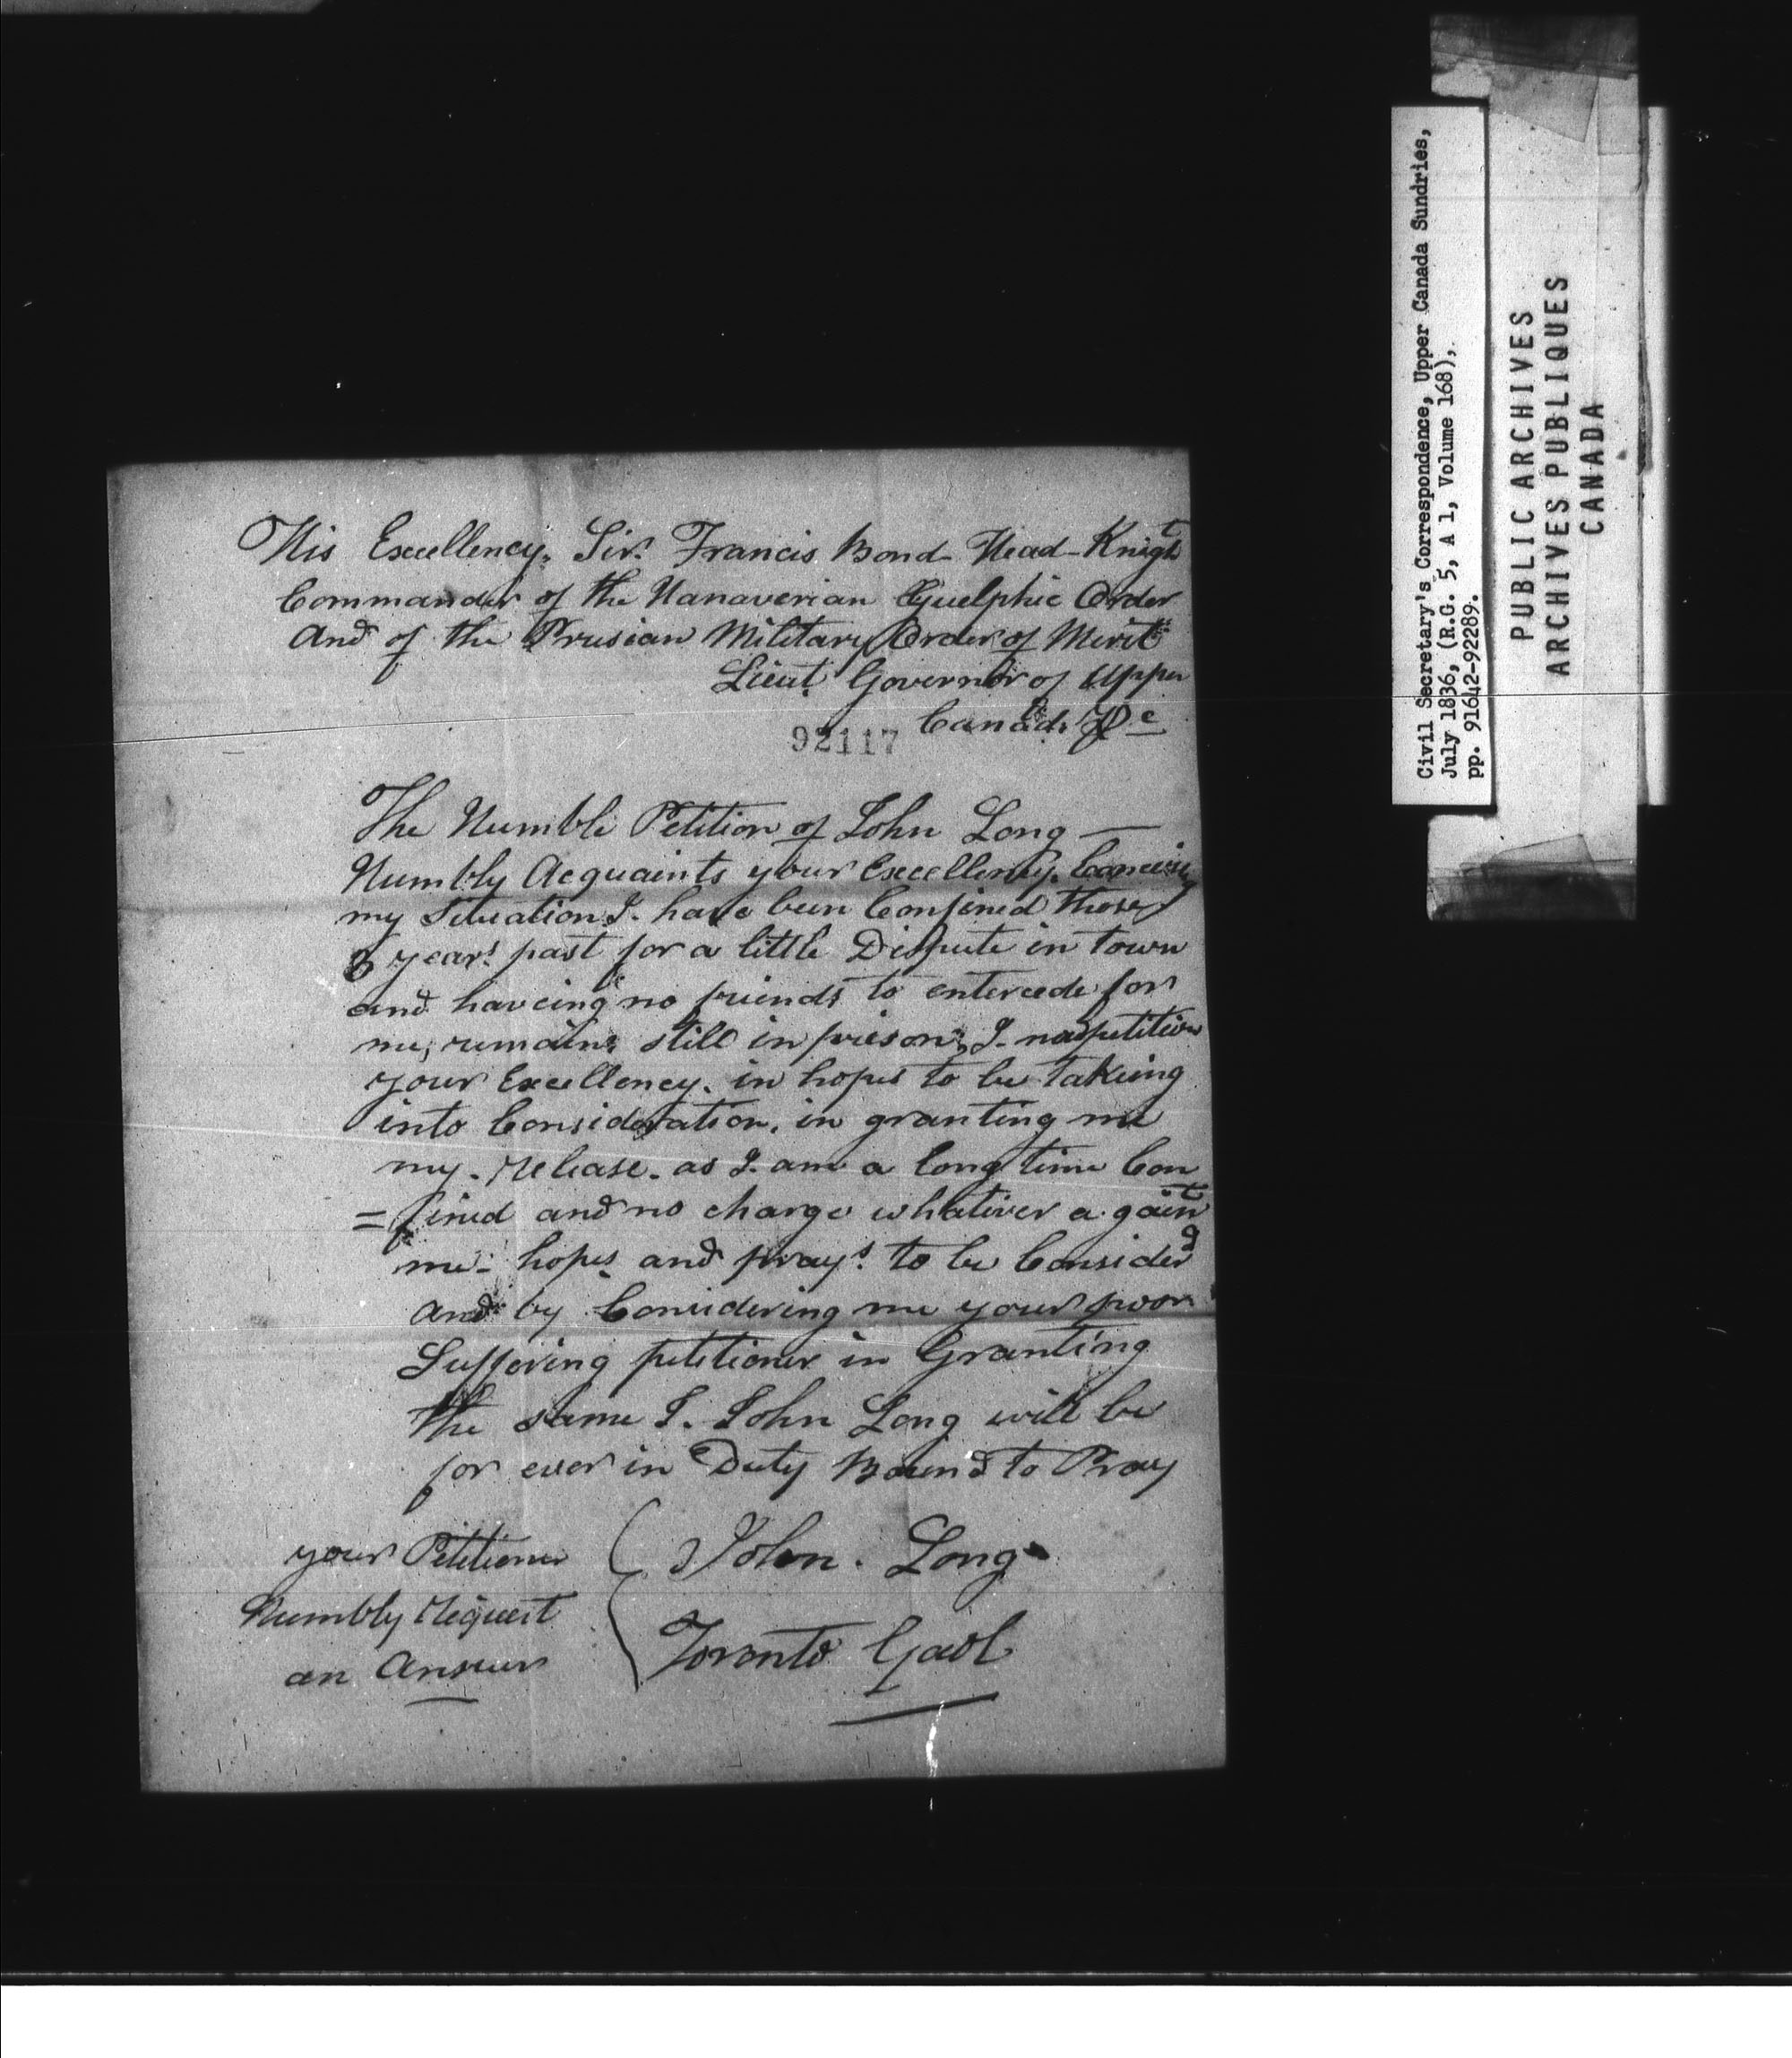 His Excellency. Sir. Francis Bond Head Knight
Commander of the Hanaverian Guelphic Order
And of the Prusian Military Order of Merit
Lieut. Governor of Upper
Canada &c
92117
The Humble Petition of John Long —
Humbly Acquaints your Excellency. Concerning
my Situation I. have been Confined those
3 years past for a little Dispute in town
and haveing no friends to entercede for
me; remains still in prison; I petition
your Excellency. in hopes to be takeing
into Consideration. in granting me
my. Release. as I. am a long time Con
=fined and no charge whatever a gainst
me- hopes and prays. to be Considerd
And by Considering me your poor
Suffering petitioner in Granting
the same I. John Long will be
for ever in Duty Bound to Pray
your Petitioner
Humbly Request
an Answer
John. Long
Toronto Gaol
Civil Secretary's Correspondence, Upper Canada Sundries,
July 1836, (R.G. 5, A 1, Volume 168),
pp. 91642-92289.
PUBLIC ARCHIVES
ARCHIVES PUBLIQUES
CANADA